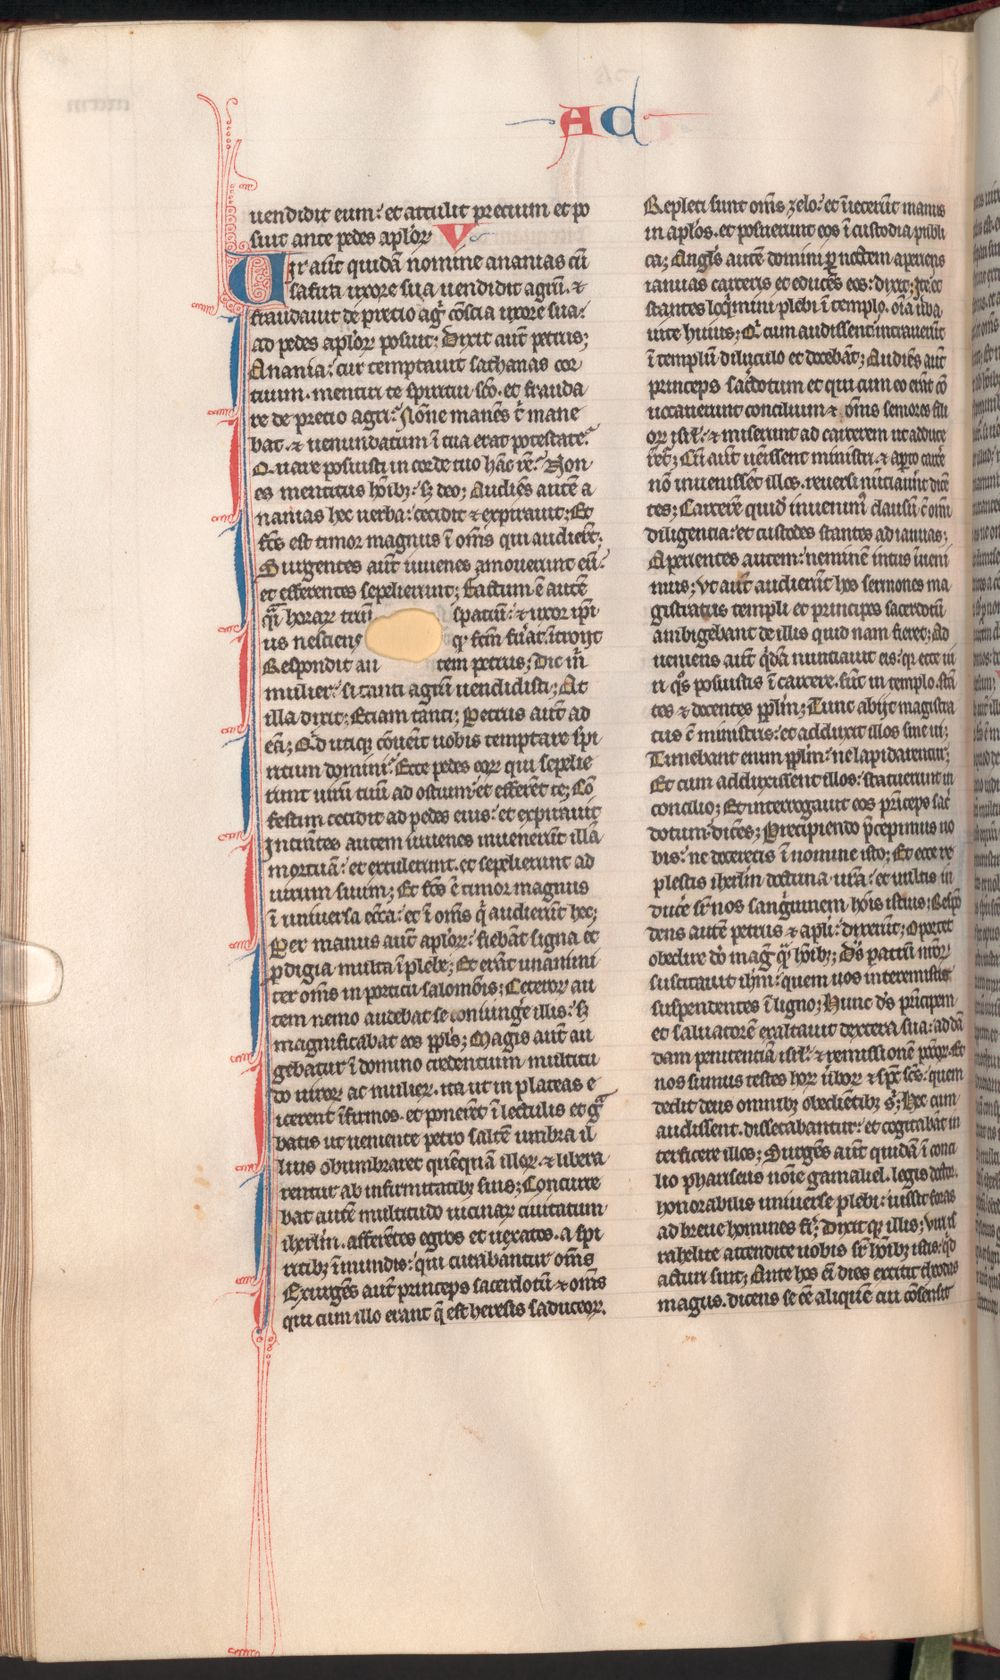 Ad
uendidit eum: et attulit precium et po
suit ante pedes aplor̄ V
Uir aūt quidā nomine ananias cū
safira uxore sua uendidit agrū. &
fraudauit de precio agͥ cōscia uxore sua:
ad pedes aplor̄ posuit; Dixit aūt petrus;
Anania: cur temptauit sathanas cor
tuum. mentiri te spiritui sc̄o. et frauda
re de precio agri? Nōne manēs tͥ mane
bat. & uenundatum ī tua erat potestate?
Quare posuisti in corde tuo hāc rē? Non
es mentitus hoīb; sꝫ deo; Audiēs autē a
nanias hec uerba: cecidit & expirauit; Et
fc̄s est timor magnus ī om̄s qui audierāt;
Surgentes aūt iuuenes amouerunt eū:
et efferentes sepelierunt; Factum ē autē
qͣi horar̄ triū spatiū: & uxor ipī
us nesciens qͥ fc̄m fuͥat: ītroijt
Respondit au tem petrus; Dic m̄
mulier: si tanti agrū uendidisti; At
illa dixit; Etiam tanti; Petrus aūt ad
eā; Qͥd utiqꝫ cōuēit uobis temptare spī
ritum domini? Ecce pedes eor̄ qui sepelie
runt uirū tuū ad ostium: et efferēt te; Cō
festim cecidit ad pedes eius: et expirauit
Intrātes autem iuuenes inuenerūt illā
mortuā: et extulerunt. et sepelierunt ad
uirum suum; Et fc̄s ē timor magnus
ī uniuersa ecc̄a: et ī om̄s qͥ audierūt hec;
Per manus aūt aplor̄: fiebāt signa et
ꝓdigia multa ī plebe; Et erāt unanimi
ter om̄s in porticu salomōis; Ceteror̄ au
tem nemo audebat se coniungͤe illis: sꝫ
magnificabat eos ppl̄s; Magis aūt au
gebatur ī domino credentium multitu
do uiror̄ ac mulier̄. ita ut in plateas e
icerent īfirmos. et ponerēt ī lectulis et gͣ
batis ut ueniente petro saltē umbra il
lius obumbraret quēquā illor̄. & libera
rentur ab infirmitatibꝫ suis; Concurre
bat autē multitudo uicinar̄ ciuitatum
ihrl̄m. afferētes egros et uexatos. a spi
ritibꝫ īmundis: qui curabāntur om̄s
Exurgēs aūt princeps sacerdotū & om̄s
qui cum illo erant q̄ est heresis saduceor̄.
Repleti sunt om̄s zelo: et īiecerūt manus
in apl̄os. et posuerunt eos ī custodia publi
ca; Angl̄s autē domini ꝑ noctem aperiens
ianuas carceris et educēs eos: dixit; Ite. et
stantes loqͥmini plebi ī templo. oīa ūba
uite huius; Qͥ cum audissent: intrauerūt
ī templū diluculo et docebāt; Audiēs aūt
princeps sac̄dotum et qui cum eo erāt cō
uocauerunt concilium & om̄s seniores fili
or̄ isrl̄: & miserunt ad carcerem ut adduce
rēt̄; Cū aūt uēissent ministri. & apto carcͤe
nō inuenissēt illos. reuersi nūtiauͤt dicē
tes; Carcerē quidē inuenimꝰ clausū cͫ omi
diligentia: et custodes stantes ad ianuas;
Aperientes autem: neminē intus īueni
mus; Vt aūt audierūt hos sermones ma
gistratus templi et principes sacerdotū
ambigebant de illis quid nam fieret; Ad
ueniens aūt qͥdā nunciauit eis: qͥ ecce ui
ri qͦs posuistis ī carcere. sūt in templo. stā
tes & docentes ppl̄m; Tunc abijt magistra
tus cͫ ministris: et adduxit illos sine ui;
Timebant enim ppl̄m: ne lapidarentur;
Et cum adduxissent illos: statuerunt in
concilio; Et interrogauit eos prīceps sac̄
dotum. dicēs; Precipiendo p̄cepimus uo
bis: ne doceretis ī nomine isto; Et ecce re
plestis ihrl̄m doctrina ur̄a: et uultis in
ducͤe sr̄ nos sangͥuinem hoīs istius; Respō
dens autē petrus & apl̄i: dixerūt; Oportet
obedire do̅ magͥ qͣ hoībꝫ; Ds̄ patrū nr̄or̄
suscitauit ihm̄: quem uos interemistis
suspendentes ī ligno; Hunc ds̄ prīcipem
et saluatorē exaltauit dextera sua: ad dā
dam penitenciā isrl̄: & remissionē pc̄cor̄. Et
nos sumus testes hor̄ ūbor̄ & spc̄ sc̄s: quem
dedit deus omnibꝫ obediētibꝫ sͥ; Hec cum
audissent. dissecabantur: et cogitabāt in
terficere illos; Surgēs aūt quidā ī conci
lio phariseus noīe gamaliel. legis doctor.
honorabilis uniuerse plebi: iussit foras
ad breue homines fiͥ; Dixit qꝫ illis; Viri is
rahelite attendite uobis sr̄ hoībꝫ istis: qͥd
acturi sint; Ante hos eī dies extitit theodas
magus. dicens se eē aliquē cui cōsensit